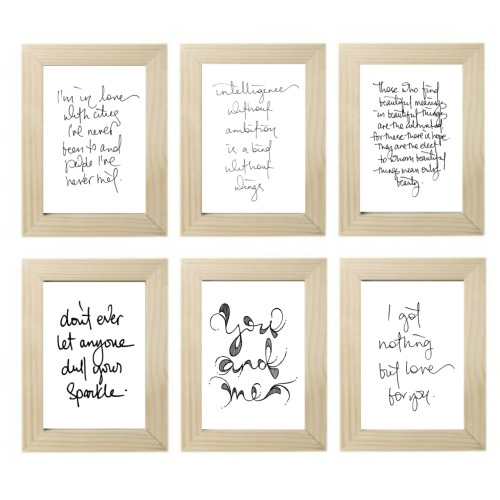 I'm in love
with cities
I've never
been to and
people I've
never met.
intelligence
without
ambition
is a bird
without
wings
Those who find
beautiful meanings
in beautiful things
are the cultivated.
for these there is hope.
They are the elect
to whom beautiful
things mean only
beauty.
don't ever
let anyone
dull your
sparkle.
You
and
me
I got
nothing
but love
for you.